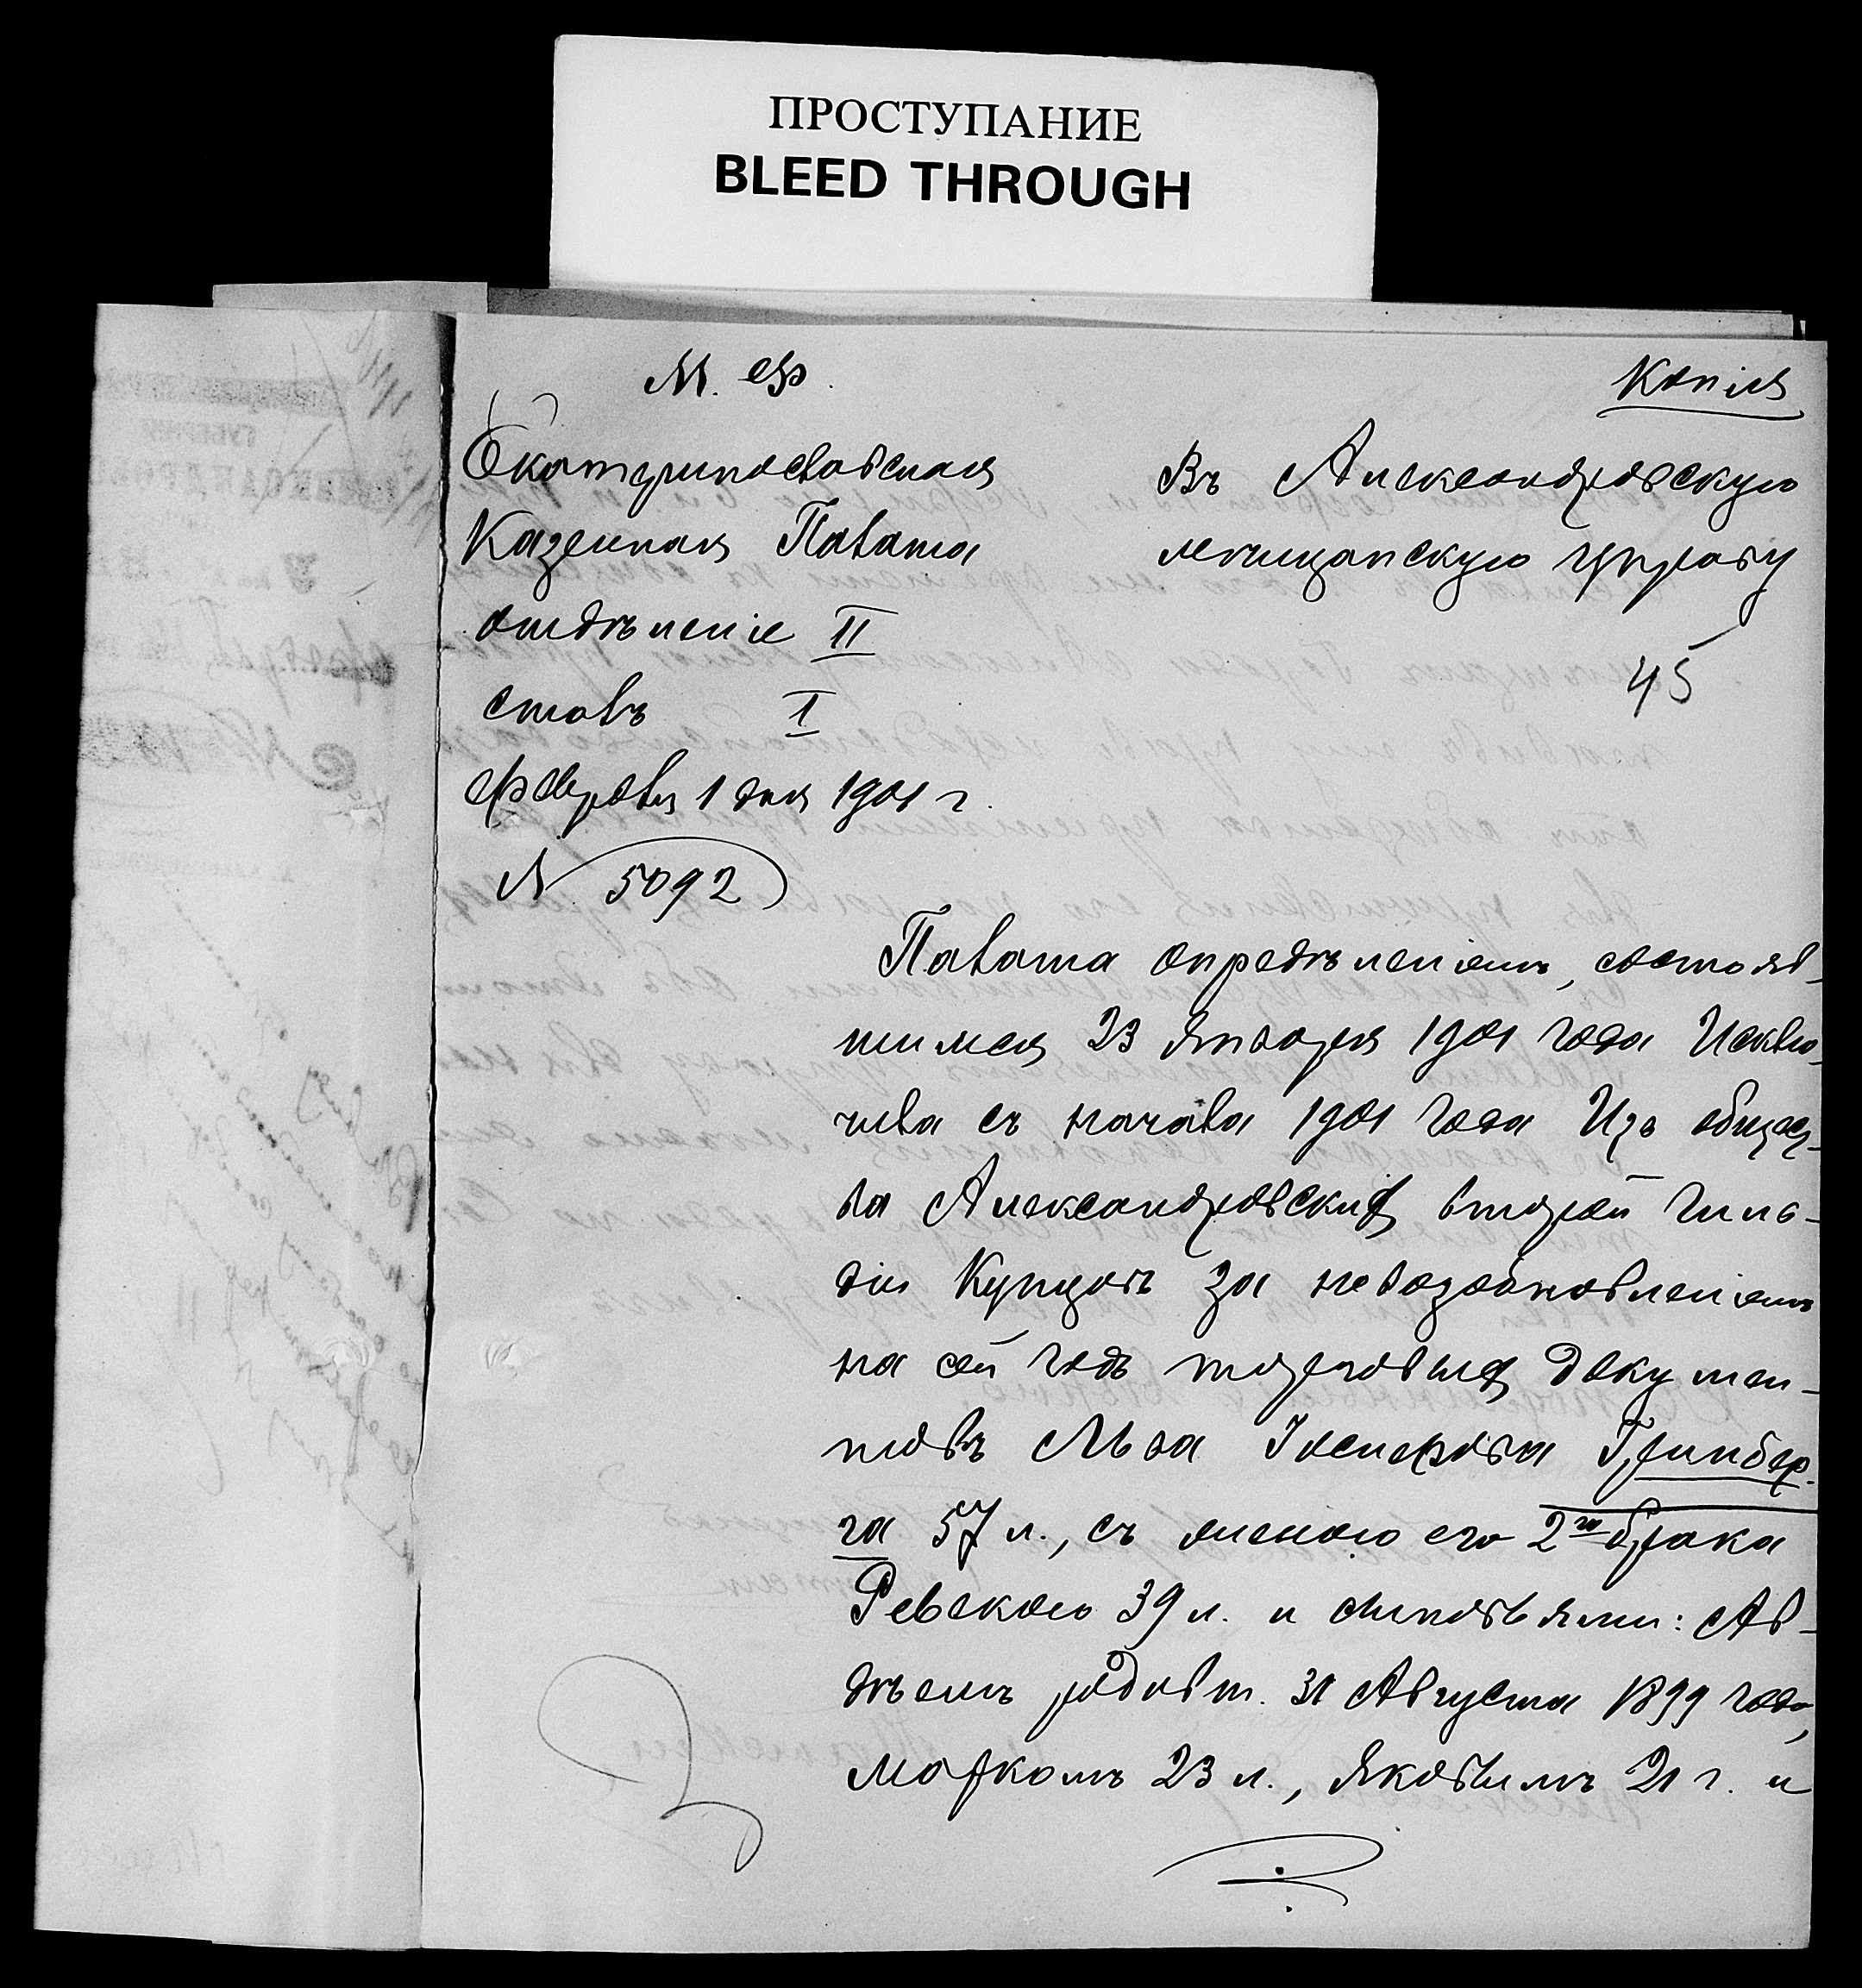 ПРОСТУПАНИЕ
BLEED THROUGH
М. Ф.
Копія
Екатеринославская
Казенная Палата
отдѣленіе II
столъ I
Февраля 1 дня 1901 г.
№ 5092
Въ Александровскую
мѣщанскую управу
45
Палата опредѣленіемъ, состояв-
шимся 23 Января 1901 года Исклю-
чила съ начала 1901 года Изъ общес-
ва Александровскихъ второй гиль-
діи Купцовъ за невозобновленіемъ
на сей годъ торговыхъ докумен-
товъ Льва Іосифова Гринбер-
га 57 л., съ женою его 2го брака
Ревекою 39 л. и сыновьями: Ав-
дѣемъ родивш. 31 Августа 1899 года,
Маркомъ 23 л., Яковымъ 21 г. и